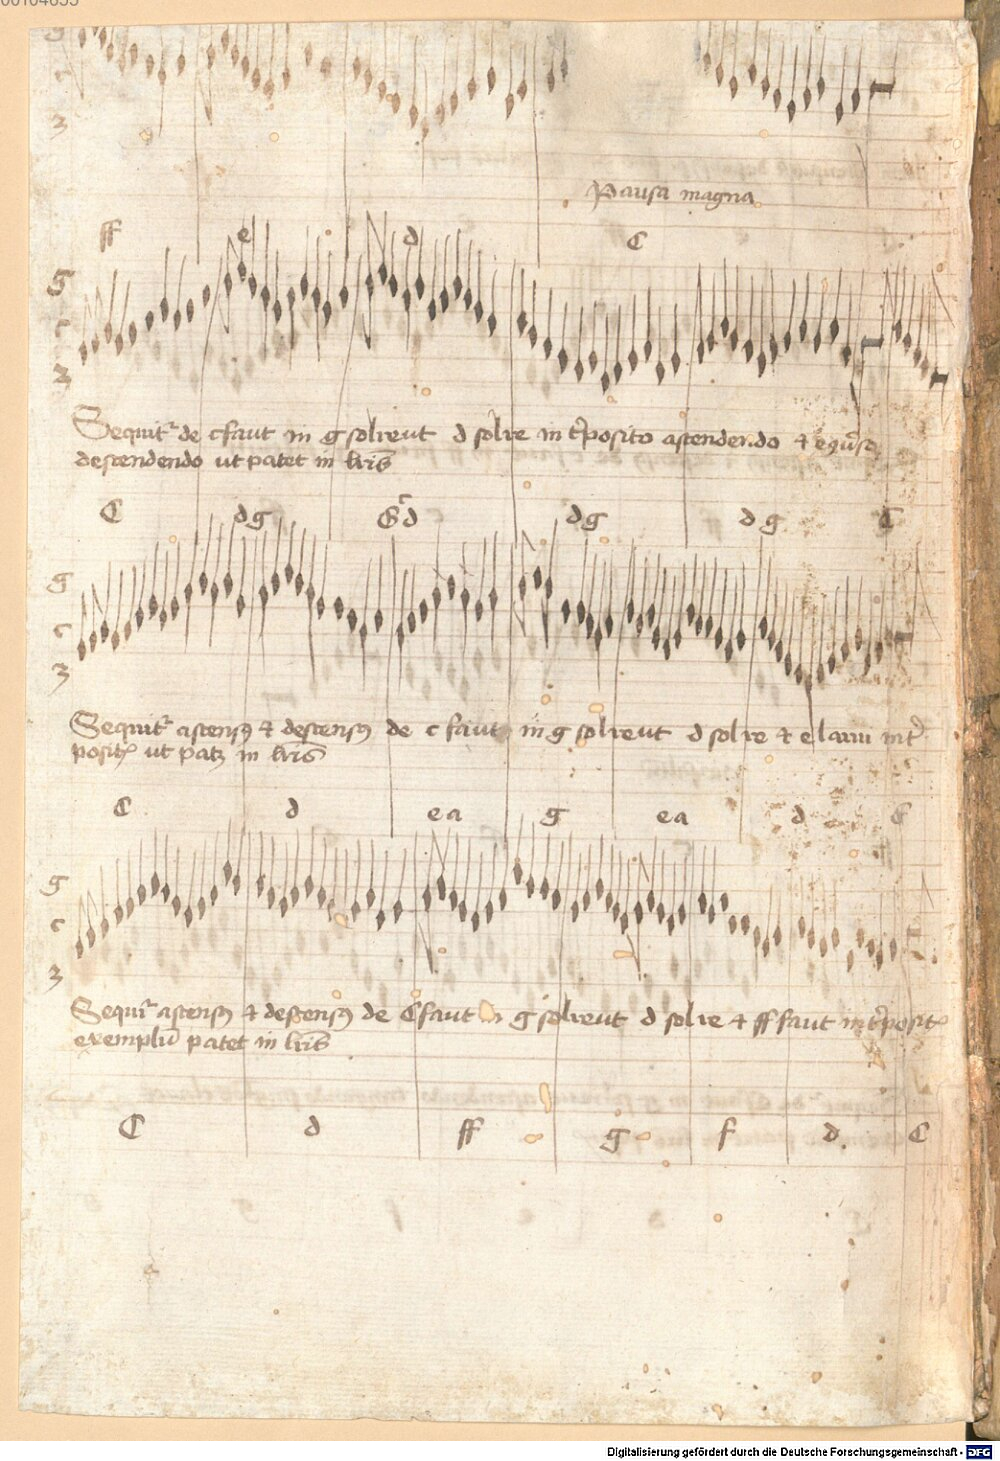 00104633
g
c
3
Pausa magna
ff e d C
g
c
3
Sequit² de cfaut in gsolreut d solre in t̃posito ascendendo et
descendendo ut patet in lr̃is
C dg Gd dg dg C
g
c
3
Sequit² ascensꝯ et descensꝯ de c faut in g solreut d solre et elami int̃
posit̃ ut patꝫ in lr̃is
C d ea g ea d
g
c
3
Sequit² ascensꝯ et descensꝯ de Cfaut g solreut d solre et ff faut int̃posit̃
exemplũ patet in lr̃is
C d ff g f d C
Digitalisierung gefördert durch die Deutsche Forschungsgemeinschaft - DFG